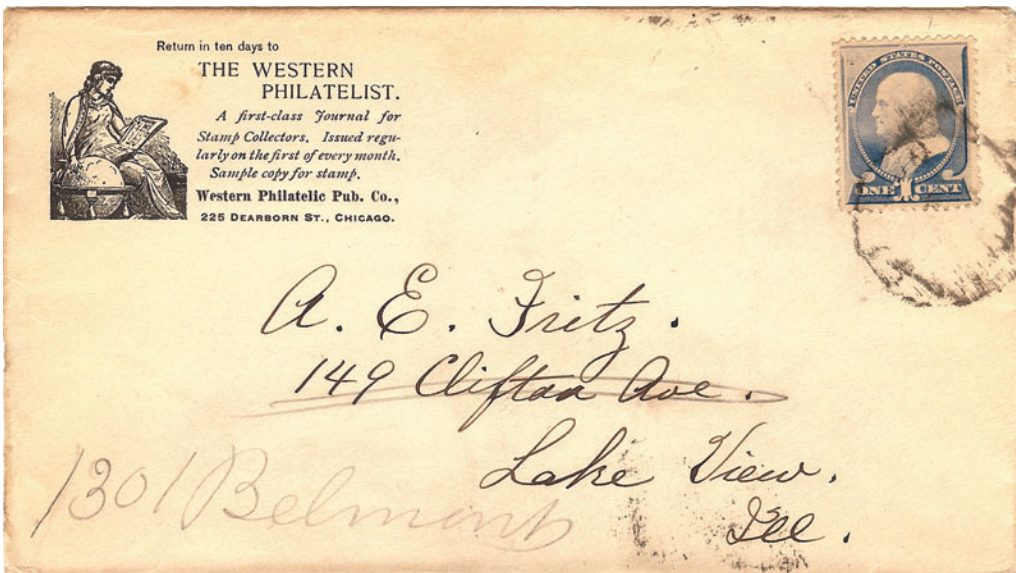 Return in ten days to
THE WESTERN
PHILATELIST.
A first-class Journal for
Stamp Collectors. Issued regu-
larly on the first of every month.
Sample copy for stamp.
Western Philatelic Pub. Co.,
225 DEARBORN ST., CHICAGO.
UNITED STATES POSTAGE
ONE 1 CENT
A. E. Fritz.
149 Clifton Ave.
Lake View.
Ill.
1301 Belmont